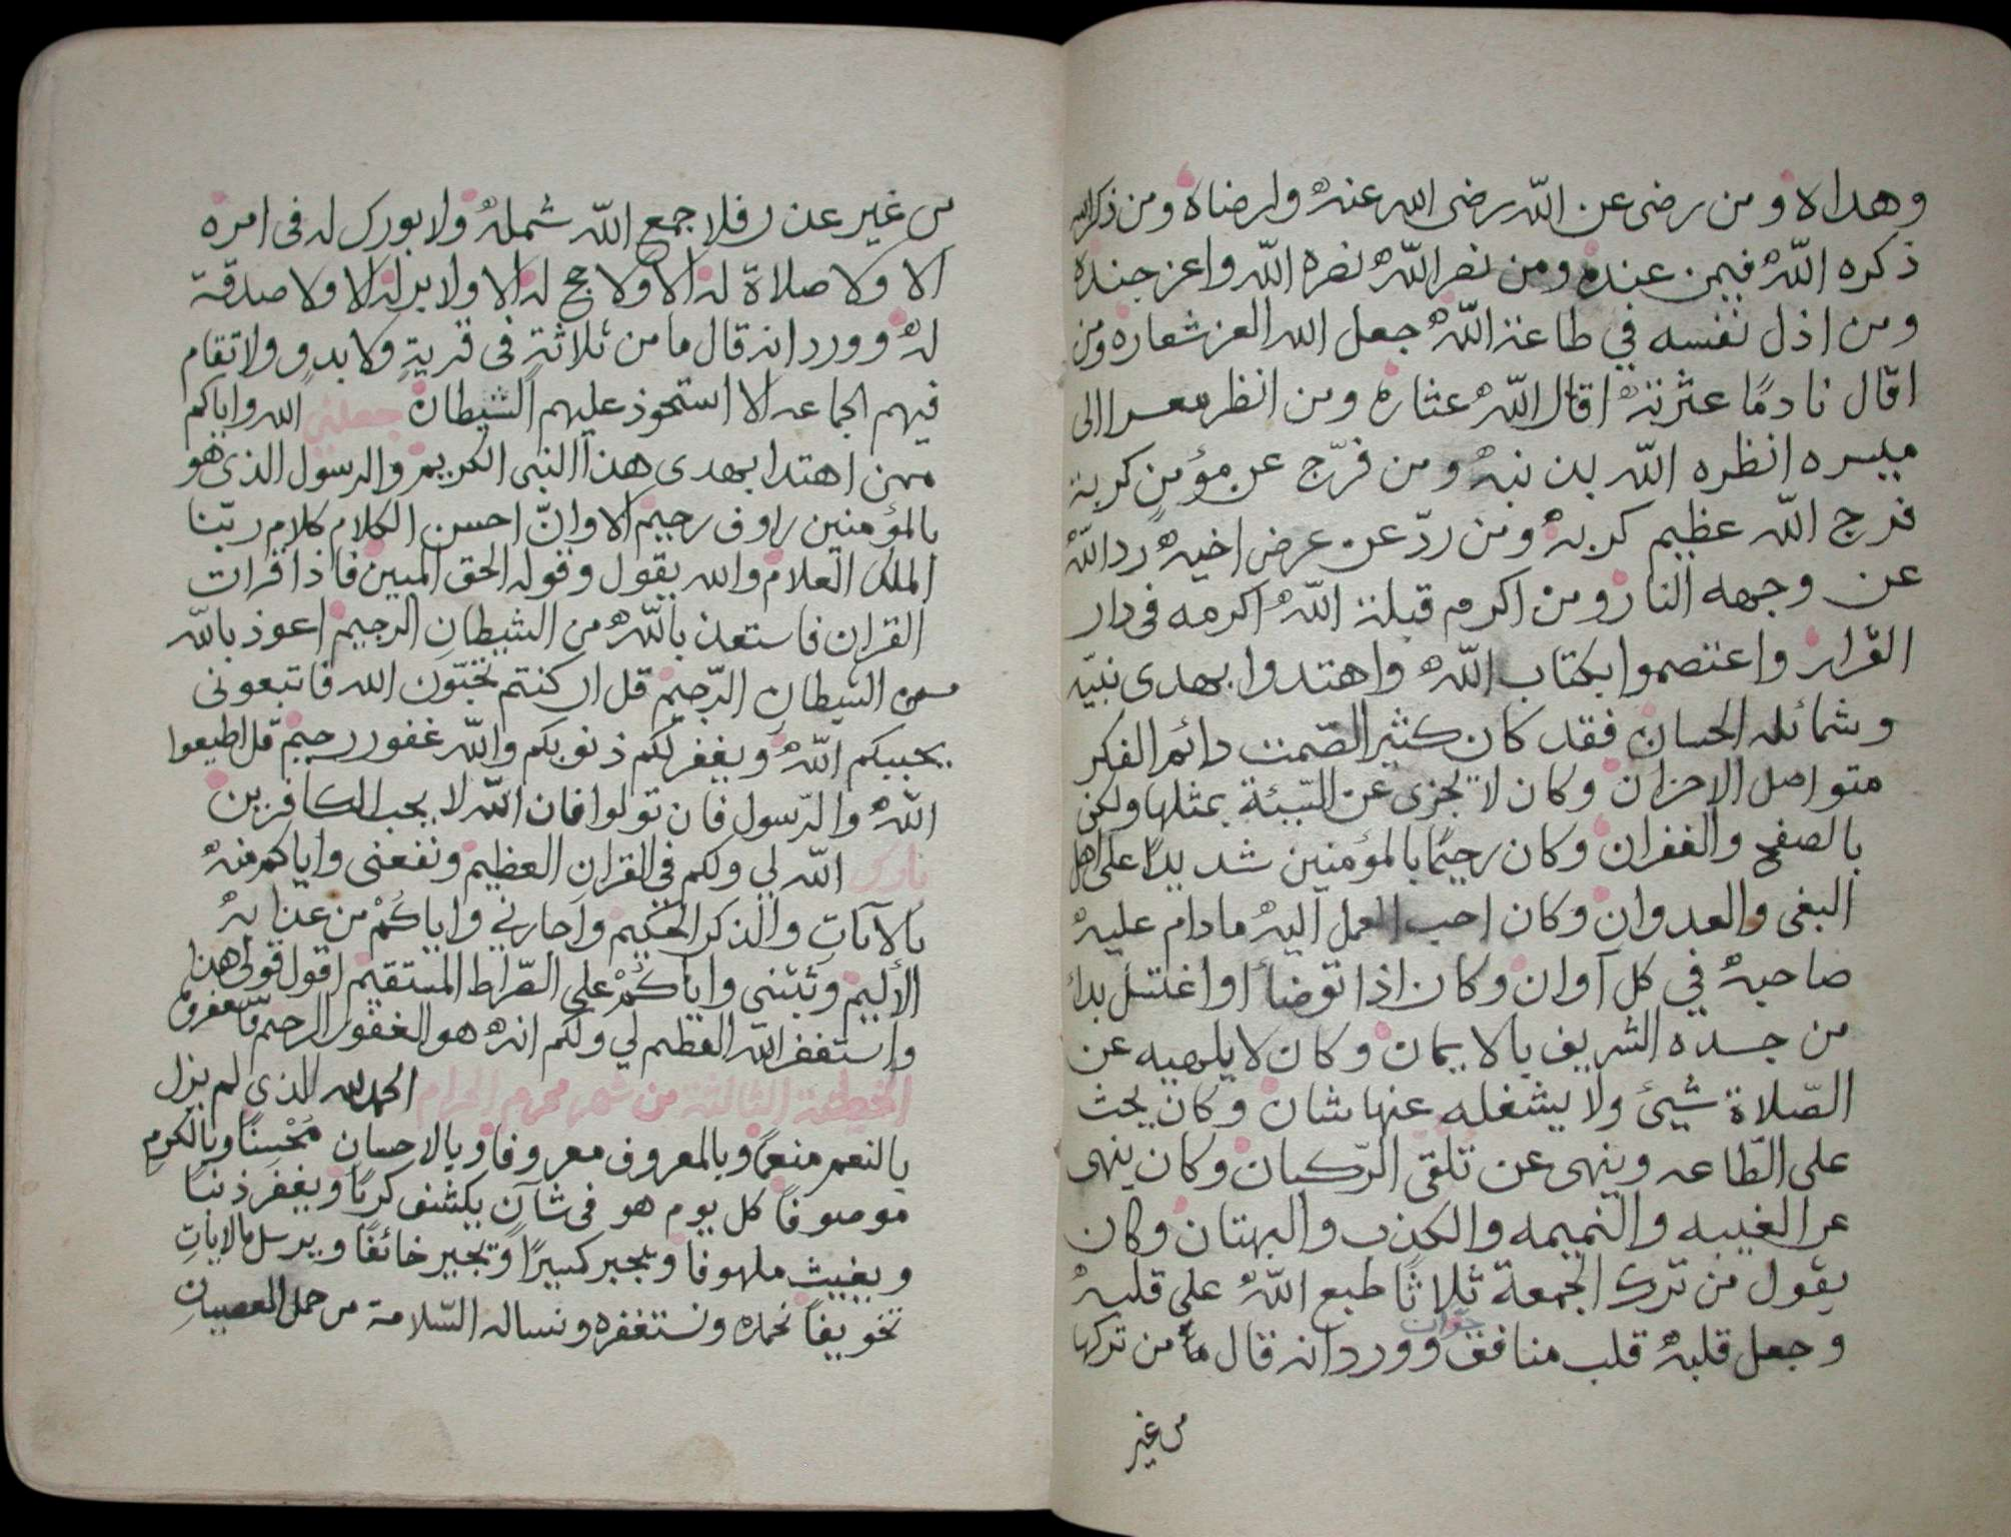 وهداه ومن رضى عن اللّه رضى الله عنهُ وارضاه ومن ذكر الله
ذكره اللّهُ فيمن عنده ومن نصر اللّهُ نصره اللّه واعز جنده
ومن اذل نفسه في طاعة اللّهُ جعل الله العز شعاره ومن
اقال نادمًا عثرتهُ اقال اللّهُ عثاره ومن انظر معسرا الى
ميسره انظره اللّه بذنبهُ ومن فرّج عن مؤمنٍ كربة
فرج اللّه عظيم كربهُ ومن ردّ عن عرض اخيهُ رد اللّهُ
عن وجهه النار ومن اكرم قبلة اللّهُ اكرمه فى دار
القرار واعتصموا بكتاب اللّهُ واهتدوا بهدى نبيّه
وشمائله الحسان فقد كان كثير الصّمت دائم الفكر
متواصل الاحزان وكان لا يجزى عن السّيئة بمثلها ولكن
بالصفح والغفران وكان رحيمًا بالمؤمنين شديدًا على اهل
البغى والعدوان وكان احب العمل اليهُ مادام عليهُ
صاحبهُ في كل آوان وكان اذا توضأ او اغتسل بدا
من جسده الشريف بالايمان وكان لا يلهيه عن
الصّلاة شيئ ولا يشغله عنها شان وكان يحث
على الطّاعه وينهى عن تلقى الرّكبان وكان ينهى
عن الغيبه والنميمه والكذب والبهتان وكان
يقول من ترك الجمعة ثلاثًا طبع اللّهُ على قلبهُ
وجعل قلبهُ قلب منافق وورد انه قال من تركها
من غير
من غير عذر فلا جمع اللّه شملهُ ولا بورك له فى امره
الا ولا صلاة له الا ولا حج له الا ولا بر له الا ولا صدقة
لهُ وورد انه قال ما من ثلاثةٍ فى قريةٍ ولا بدوٍ ولا تقام
فيهم الجماعه الا استحوذ عليهم الشيطان جعلني الله واياكم
ممن اهتدا بهدى هذا النبى الكريم والرسول الذى هو
بالمؤمنين راوف رحيم الا وانّ احسن الكلام كلام ربّنا
الملك العلام والله يقول وقوله الحق المبين فاذا قرات
القران فاستعذ باللّهُ من الشيطانِ الرجيم اعوذ باللّه
من الشيطانِ الرّجيم قل ان كنتم تحبّون الله فاتبعونى
يحببكم اللّهُ ويغفر لكم ذنوبكم واللّه غفور رحيم قل اطيعوا
اللّهُ والرّسول فان تولوا فان اللّه لا يحب الكافرين
بارك اللّه لي ولكم في القرانِ العظيم ونفعنى واياكم منهُ
بالآياتِ والذكر الحكيم واجارني واياكُمْ من عذابهُ
الأليم وثبتنى واياكُمْ على الصّراط المستقيم اقول قولى هذا
واستغفر اللّه العظيم لي ولكم انهُ هو الغفور الرحيم فاستغفروه
الخطبة الثالثة من شهر محرم الحرام الحمد لله الذي لم يزل
بالنعم منعمًا وبالمعروف معروفا وبالاحسانِ مُحْسِنًا وبالكرمِ
موصوفًا كل يوم هو فى شآن يكشف كربًا ويغفر ذنبًا
ويغيث ملهوفا ويجبر كسيرًا ويجير خائفًا ويرسل بالاياتِ
تخويفًا نحمده ونستغفره ونساله السّلامة من حمل العصيانِ